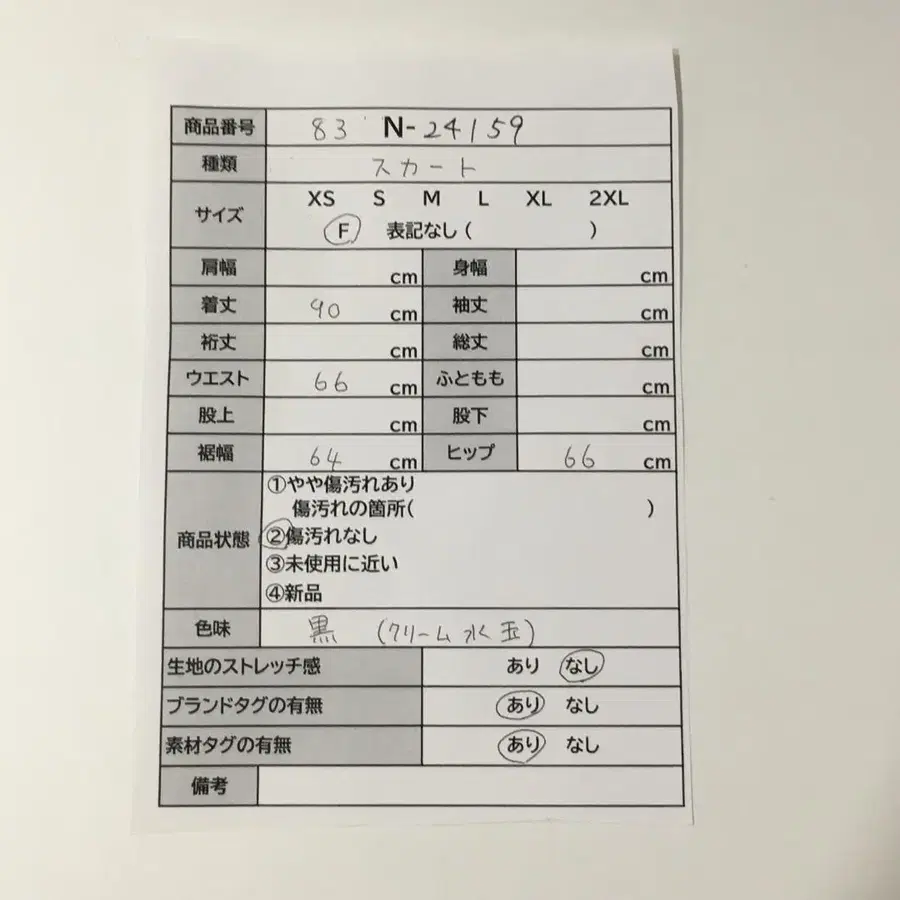 商品番号 83 N-24159
種類 スカート
サイズ XS S M L XL 2XL
F 表記なし ( )
肩幅 cm 身幅 cm
着丈 90 cm 袖丈 cm
裄丈 cm 総丈 cm
ウエスト 66 cm ふともも cm
股上 cm 股下 cm
裾幅 64 cm ヒップ 66 cm
商品状態 ①やや傷汚れあり
傷汚れの箇所( )
②傷汚れなし
③未使用に近い
④新品
色味 黒 (クリーム水玉)
生地のストレッチ感 あり なし
ブランドタグの有無 あり なし
素材タグの有無 あり なし
備考